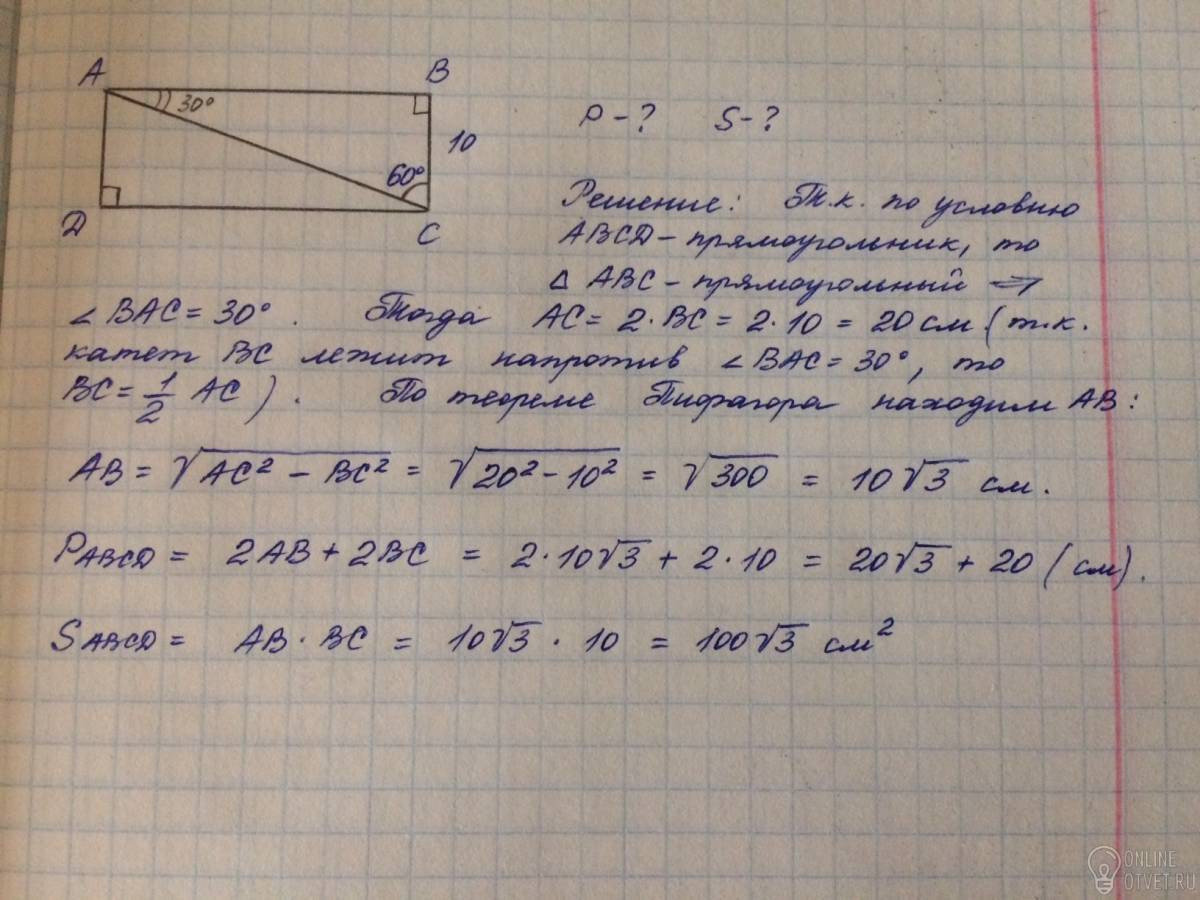 A B
30°
10
60°
D C
P - ? S - ?
Решение: Т.к. по условию
ABCD - прямоугольник, то
△ ABC - прямоугольный ⇒
∠ BAC = 30°. Тогда AC = 2·BC = 2·10 = 20 см (т.к.
катет BC лежит напротив ∠ BAC = 30°, то
BC = 1/2 AC). По теореме Пифагора находим AB:
AB = √(AC² - BC²) = √(20² - 10²) = √300 = 10√3 см.
P ABCD = 2AB + 2BC = 2·10√3 + 2·10 = 20√3 + 20 (см).
S ABCD = AB · BC = 10√3 · 10 = 100√3 см²
ONLINE
OTVET.RU